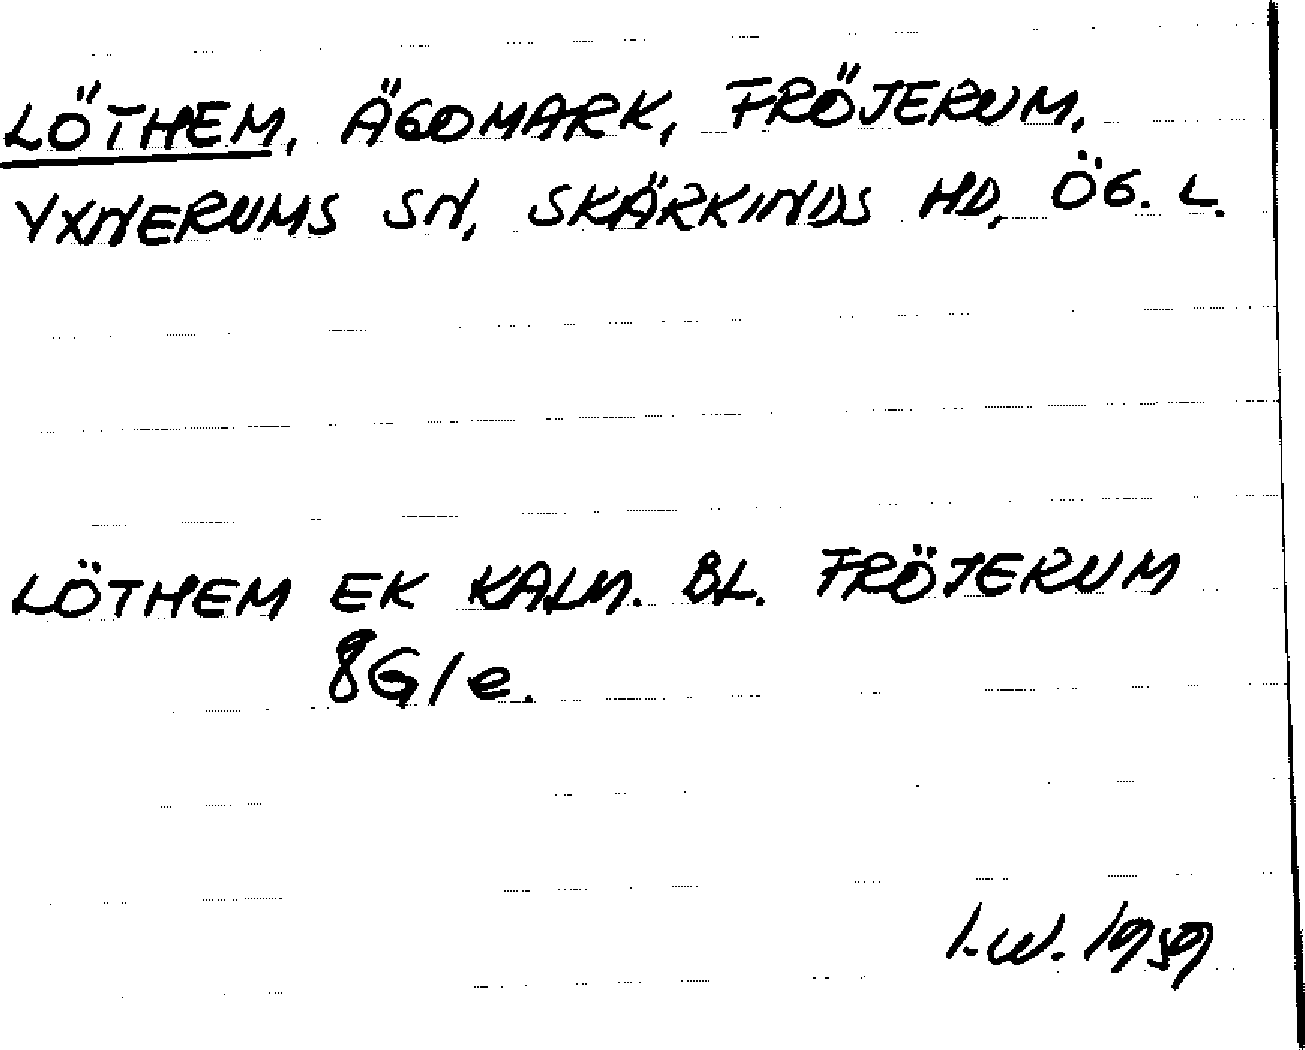 LÖTHEM, ÄGOMARK, FRÖJERUM,
YXNERUMS SN, SKÄRKINDS HD, ÖG. L.
LÖTHEM EK KALM. BL. FRÖJERUM
8G1e.
I.W. 1959